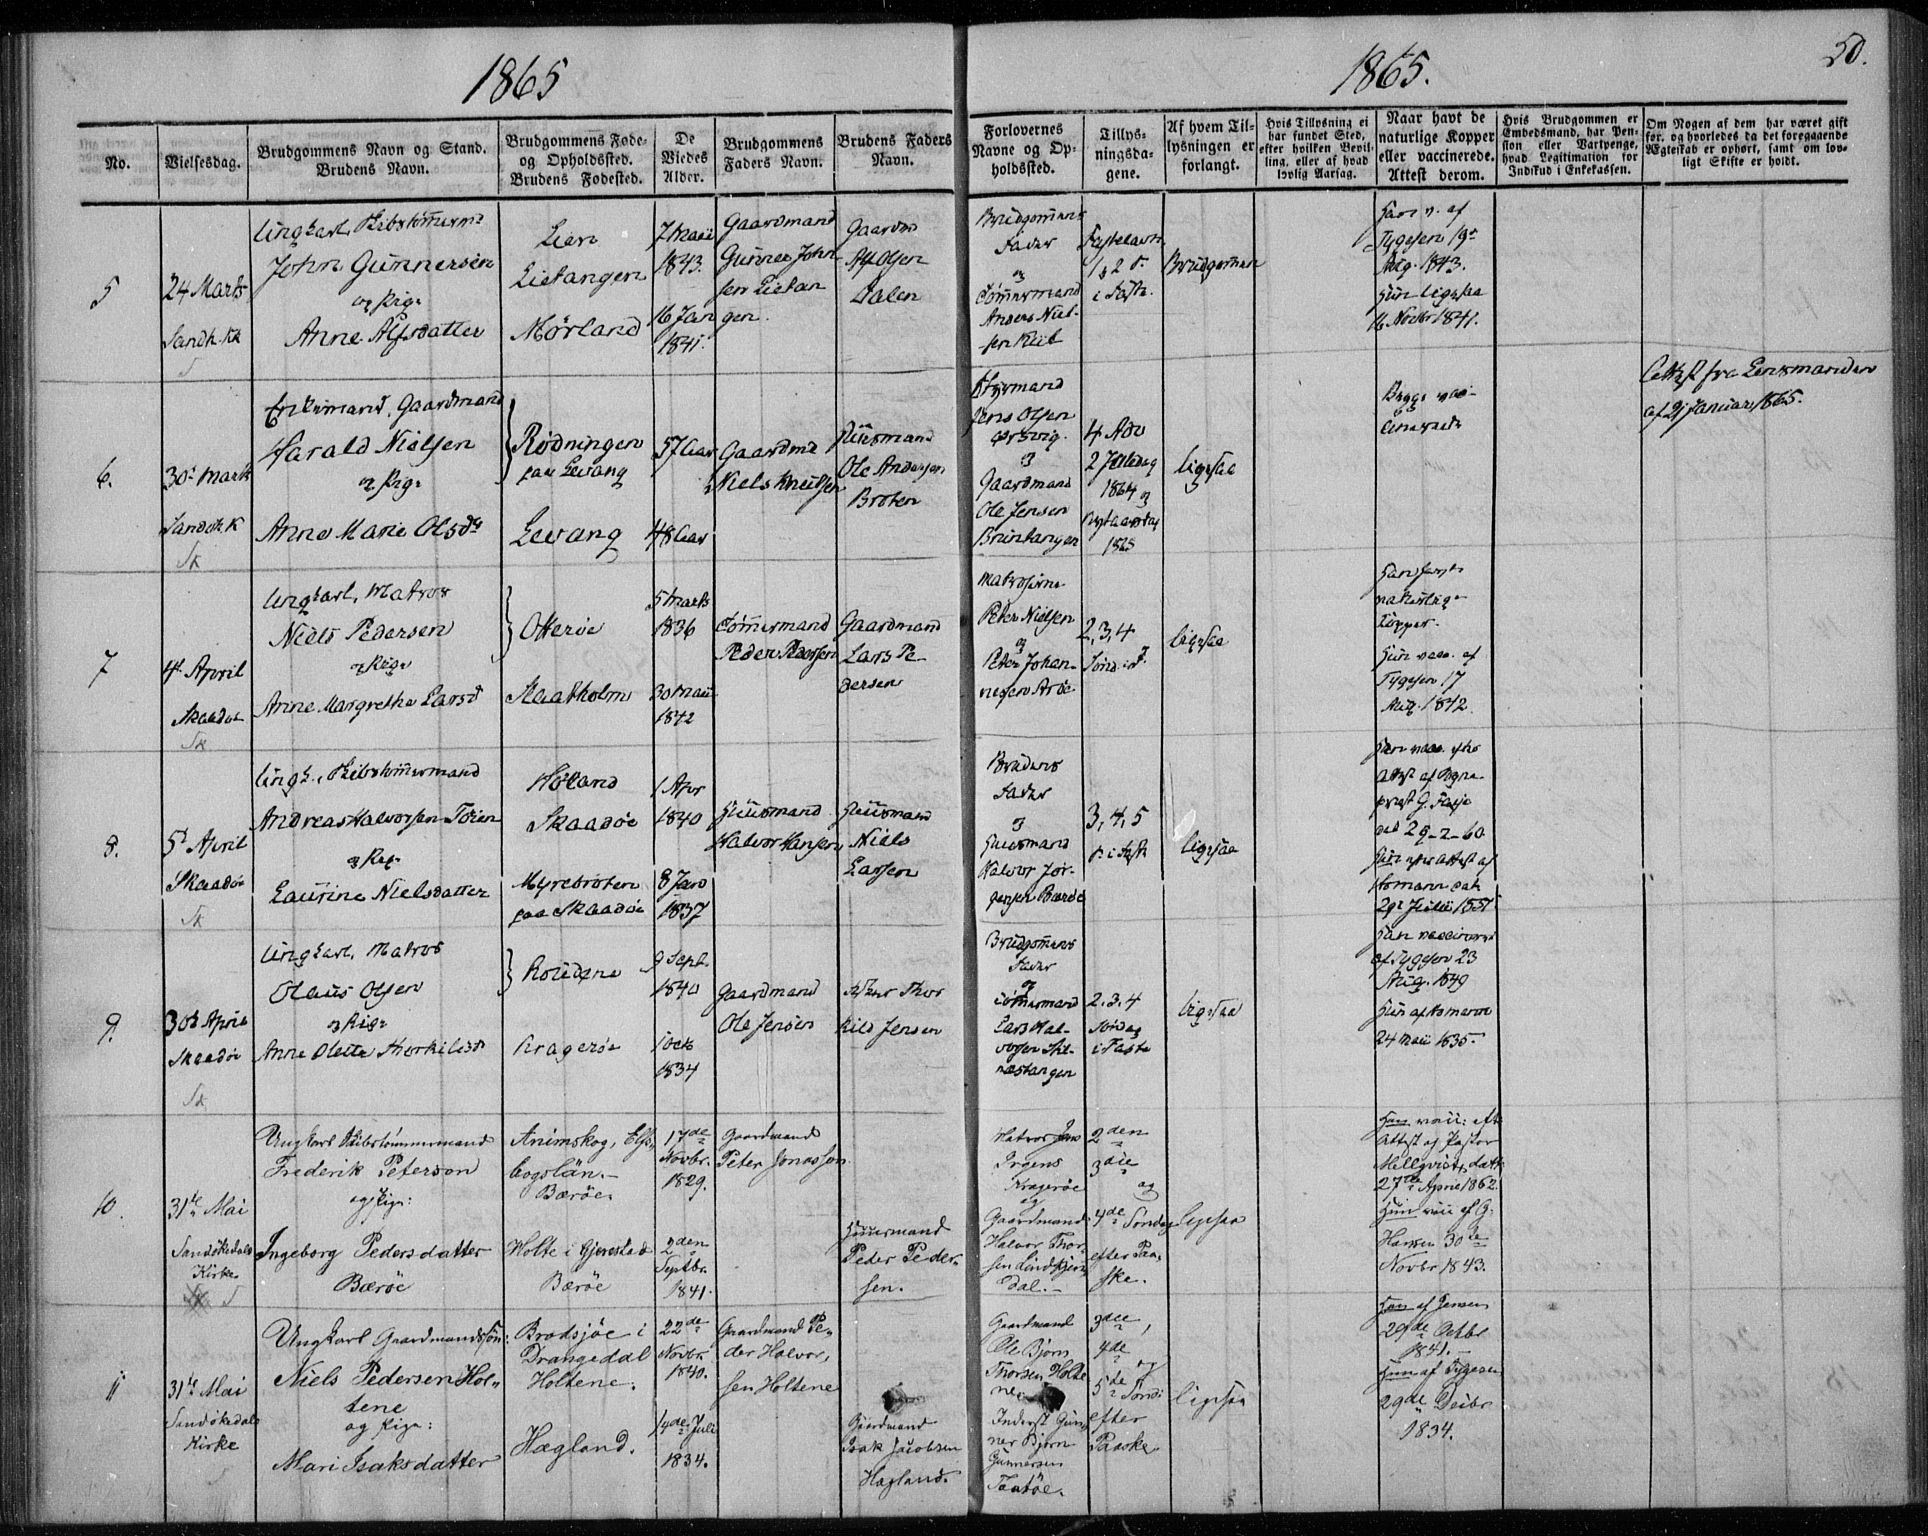 1865
1865.
50.
No.
Vielsesdag.
Brudgommens Navn og Stand.
Brudens Navn.
Brudgommens Føde-
og Opholdssted.
Brudens Fødested.
De
Viedes
Alder.
Brudgommens
Faders Navn.
Brudens Faders
Navn.
Forlovernes
Navne og Op-
holdssted.
Tillys-
ningsda-
gene.
Af hvem Til-
lysningen er
forlangt.
Hvis Tillysning ei
har fundet Sted,
efter hvilken Bevil-
ling, eller af hvad
lovlig Aarsag.
Naar havt de
naturlige Kopper
eller vaccinerede.
Attest derom.
Hvis Brudgommen er
Embedsmand, har Pen-
sion eller Vartpenge,
hvad Legitimation for
Indskud i Enkekassen.
Om Nogen af dem har været gift
før, og hvorledes da det foregaaende
Ægteskab er ophørt, samt om lov-
ligt Skifte er holdt.
5
24 Marts
Sandk. Kk
Ungkarl, Skibstømerm
John Gunnersen
og Pige
Anne Alfsdatter
Lien
Lietangen
Mørland
7 Maii
1843.
16 Jan
1841.
Gaardmand
Gunner John
sen Lietan
gen.
Gaardm
Alf Olsen
Dalen
Brudgommens
Fader
og
Tømmermand
Anders Niel-
sen
Fastelavn
1 & 2 S.
i Faste.
Brudgomen
Ham v. af
Tygesen 19
Aug. 1843.
Hun ligesaa
16 Novbr 1841.
6.
30 Marts
Sandøk. K
Sk
Enkemand, Gaardmand
Harald Nielsen
og Pige
Anne Marie Olsd
Rødningen
paa Levang
Levang
57 Aar
48 Aar
Gaardmd
Niels Knudsen
Huusmand
Ole Andersen
Broten
Styrmand
Jens Olsen
Ørsvig.
og
Gaardmand
Ole Jensen
Bruntangen
4 Adv
2 Juledag
1864 og
Nytaarsdag
1865
ligesaa
Begge vac-
cinerede
Attest fra Lensmanden
af 21 Januar 1865.
7
4 April
Skaadøe
Sk
Ungkarl, Matros
Niels Pedersen
og Pige
Anne Margrethe Larsd
Otterøe
Skaatholm
5 Marts
1836
30 Maii
1842
Tømmermand
Peder Pedersen
Gaardmand
Lars Pe-
dersen
Matroserne
Peter Nielsen
og
Peter Johan-
nesen Arøe
2, 3, 4
Sønd. i F.
ligesaa
Han havt
naturlige
Kopper.
Hun vacc. af
Tygesen 17
Aug. 1842
8.
5 April
Skaadøe
Sk
Ungk., Skibstømmermand
Andreas Halvorsen Toien
og Pige
Laurine Nielsdatter
Høland
Skaadøe
Myrebroten
paa Skaadøe
1 Apr
1840
8 Jan
1837
Huusmand
Halvor Hansen
Huusmand
Niels
Larsen
Brudens
Fader
og
Huusmand
Halvor Jør-
gensen Bærøe
3, 4, 5
S. i Faste
ligesaa
Han vacc. efter
Attest af Sogne-
prest G. Faye
dat 29-2-60
Hun efter Attest af
Homann dat
29 Julii
9.
30 April
Skaadøe
Sk
Ungkarl, Matros
Olaus Olsen
og Pige
Anne Olette Thorkilsd
Kragerøe
9 Sept.
1840
1 Oct
1834
Gaardmand
Ole Jensen
Thor
kild Jensen
Brudgommens
Fader
og
Tømmermand
Lars Hal-
vorsen
næstangen
2. 3. 4
Søndag
i Faste
ligesaa
Han vaccineret
af Tygesen 23
Aug. 1849
Hun af Homann
24 Maii 1835
10.
31te Mai
Sandøkedals
Kirke
Ungkarl Skibstømmermand
Frederik Peterson
og Pige:
Ingeborg Pedersdatter
Bærøe
Animskog, Elfs-
borgslän.
Bærøe.
Holte i Gjerestad
Bærøe
17de
Novbr.
1829.
2den
Septbr.
1841.
Gaardmand
Peter Jonassen
Huusmand
Peder Peder-
sen.
Halvor Jens
Irgens
Kragerøe
og
Gaardmand
Halvor Thor-
sen Lindbjørn
dal.
2den
3die
og
4de Søndag
efter Paa-
ske.
ligesaa
Han vacc: eft
Attest af Pastor
Mellqvist, datt
27de April 1862.
Hun vacc af G.
Hansen 30te
Novbr 1843.
11
31te Mai
Sandøkedals
Kirke
Ungkarl Gaardmandssøn:
Niels Pedersen Hol-
tene
og Pige:
Mari Isaksdatter
Brødsjøe i
Drangedal
Holtene.
Hægland.
22de
Novbr.
1840.
14de Juli
1834.
Gaardmand Pe-
der Halvor-
sen Holtene
Gaardmand
Isak Jacobsen
Hægland.
Gaardmand
Ole Bjørn
Thorsen Holte
ne
Inderst Gun-
ner Bjørn
Gunnersen
Taatøe.
3die,
4de
og
5de Sønd:
efter
Paaske
ligesaa
Han af Jensen
29de Octbr
1841.
Hun af Tygesen
29de Decbr
1834.